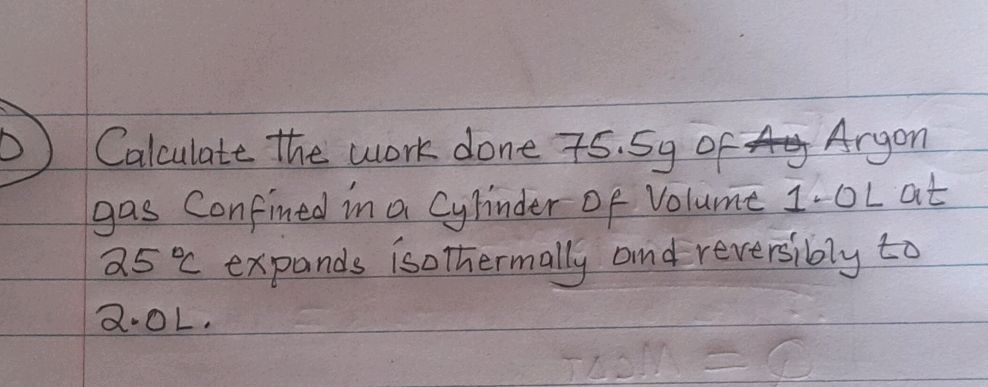 Calculate the work done 75.5g of Ag Argon
gas Confined in a Cylinder Of Volume 1.0L at
25°C expands isothermally and reversibly to
2.0L.